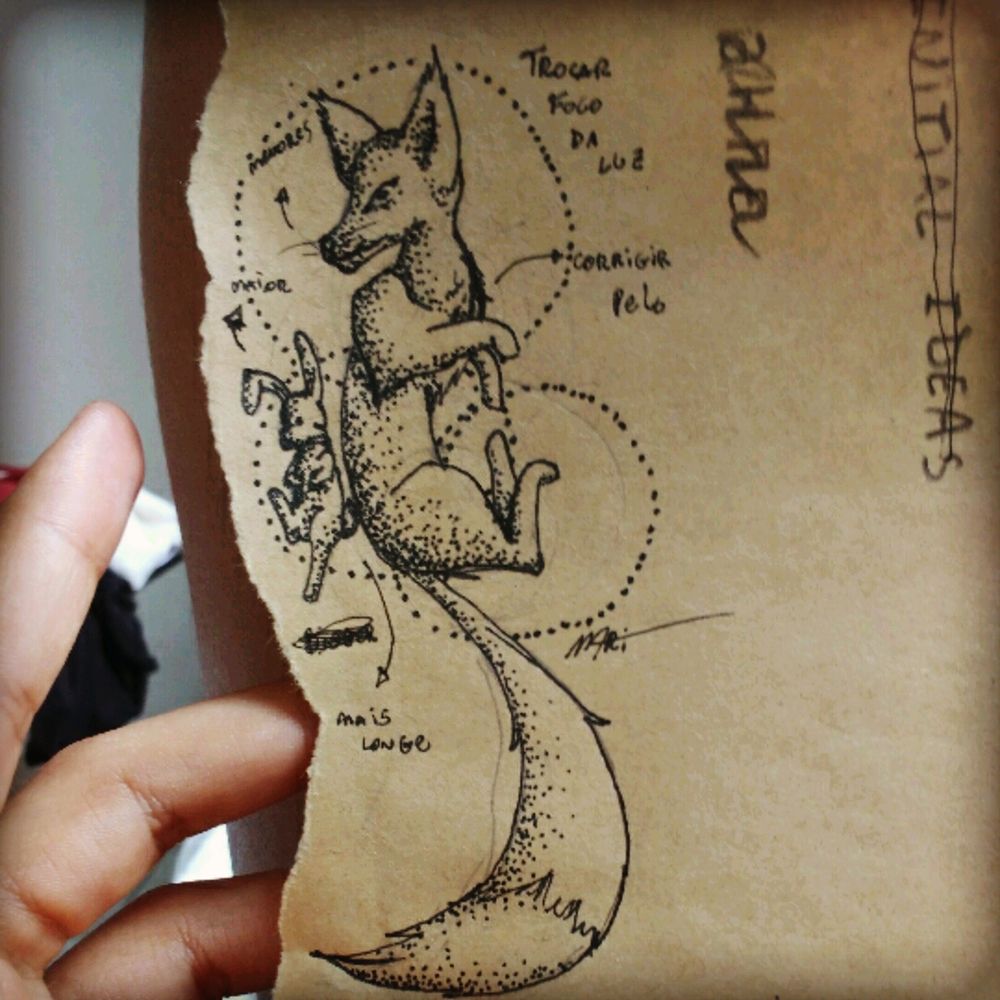 TROCAR
FOCO
DA
LUZ
MENORES
MAIOR
CORRIGIR
Pelo
MARi
MAiS
LONGe
ENITIAL IDEAS